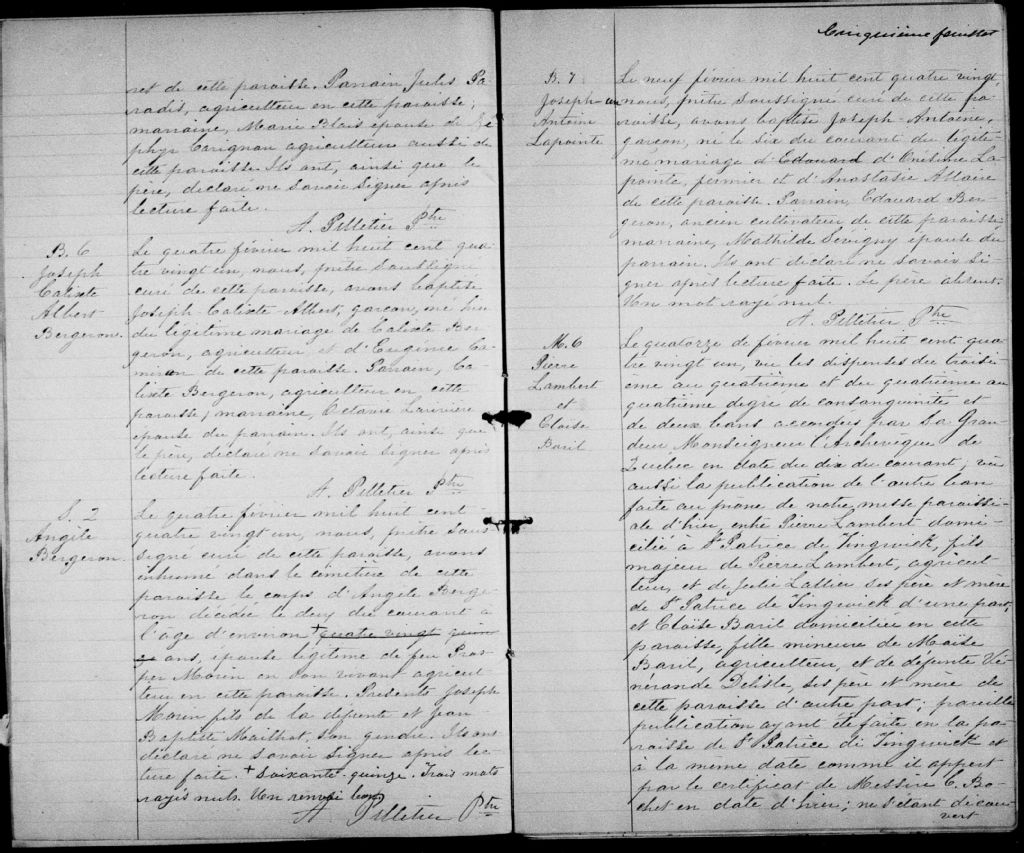 net de cette paroisse. Parrain Jules Pa-
radis, agriculteur en cette paroisse;
marraine, Marie Blais épouse de Zé-
phyr Carignan agriculteur aussi de
cette paroisse. Ils ont, ainsi que le
père, déclaré ne savoir signer après
lecture faite.
A. Pelletier Ptre
B. 6
Joseph
Calixte
Albert
Bergeron.
Le quatre février mil huit cent qua-
tre vingt un, nous, prêtre soussigné
curé de cette paroisse, avons baptisé
Joseph-Calixte-Albert, garçon, né hier
du légitime mariage de Calixte Ber-
geron, agriculteur, et d'Eugénie Ca-
miron de cette paroisse. Parrain, Ca-
lixte Bergeron, agriculteur en cette
paroisse; marraine, Octavie Laurière
épouse du parrain. Ils ont, ainsi que
le père, déclaré ne savoir signer après
lecture faite.
A. Pelletier Ptre
S. 2
Angèle
Bergeron.
Le quatre février mil huit cent
quatre vingt un, nous, prêtre sous-
signé curé de cette paroisse, avons
inhumé dans le cimetière de cette
paroisse le corps d'Angèle Berge-
ron décédée le deux du courant à
l'âge d'environ + quatre vingt quin-
ze ans, épouse légitime de feu Pros-
per Morin en son vivant agricul-
teur en cette paroisse. Présents Joseph
Morin fils de la défunte et Jean
Baptiste Mailhot, son gendre. Ils ont
déclaré ne savoir signer après lec-
ture faite. + Soixante-quinze. Trois mots
rayés nuls. Un renvoi bon
A Pelletier Ptre
Cinquième feuillet
B. 7
Joseph-
Antoine
Lapointe
Le neuf février mil huit cent quatre vingt
un nous, prêtre soussigné curé de cette pa-
roisse, avons baptisé Joseph-Antoine,
garçon, né le six du courant du légiti-
me mariage d'Edouard d'Onésime La-
pointe, fermier et d'Anastasie Allaire
de cette paroisse. Parrain, Edouard Ber-
geron, ancien cultivateur de cette paroisse
marraine, Mathilde Sévigny épouse du
parrain. Ils ont déclaré ne savoir si-
gner après lecture faite. Le père absent.
Un mot rayé nul.
A. Pelletier Ptre
M. 6
Pierre
Lambert
et
Cloïse
Baril
Le quatorze de février mil huit cent qua
tre vingt un, vu les dispenses du troisi-
ème au quatrième et du quatrième au
quatrième degré de consanguinité et
de deux bans accordées par Sa Gran-
deur Monseigneur l'Archevêque de
Québec en date du dix du courant; vu
aussi la publication de l'autre ban
faite au prône de notre messe paroissi-
ale d'hier, entre Pierre Lambert domi-
cilié à St Patrice de Tingwick, fils
majeur de Pierre Lambert, agricul-
teur, et de Julie Lallier ses père et mère
de St Patrice de Tingwick d'une part;
et Cloïse Baril domiciliée en cette
paroisse, fille mineure de Moïse
Baril, agriculteur, et de défunte Vé-
nérande Delisle, ses père et mère de
cette paroisse d'autre part; pareille
publication ayant été faite en la pa-
roisse de St Patrice de Tingwick et
à la même date comme il appert
par le certificat de Messire E. Bo-
chet en date d'hier; ne s'étant décou-
vert